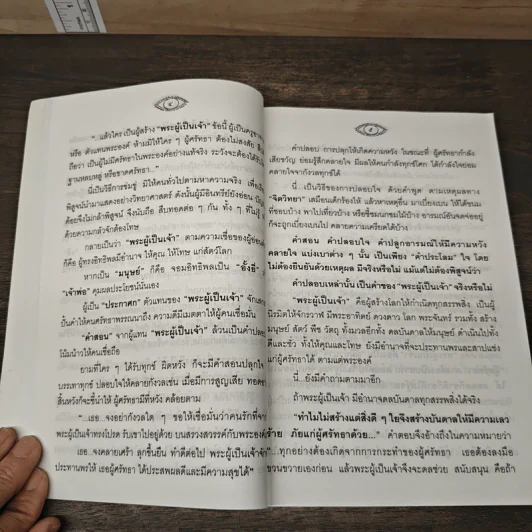 ๔
" แล้วใคร เป็นผู้สร้าง "พระผู้เป็นเจ้า" ข้อนี้ ผู้เป็น
หรือ ตัวแทนพระองค์ ห้ามมิให้ใคร ๆ ผู้ศรัทธา ต้องไม่สงสัย
ถือว่า เป็นผู้ไม่มีศรัทธาในพระองค์อย่างแท้จริง ระวังจะต้องได้
ฐานหลบหลู่ หรือขาดศรัทธา..."
นี่เป็นวิธีการข่มขู่ มิให้คนทั่วไปตามหาความจริง
พิสูจน์นำมาแสดงอย่างวิทยาศาสตร์ ดังนั้นผู้มีอินทรีย์ยังอ่อน
ด้อยจึงไม่กล้าพิจารณ์ จึงนับถือ สืบทอดต่อ ๆ กัน ทั้ง ๆ ที่ไม่
ด้วยความกลัวจักต้องโทษ
กลายเป็นว่า "พระผู้เป็นเจ้า" ตามความเชื่อของผู้
ก็คือ ผู้ทรงอิทธิพลมีอำนาจ ให้คุณ ให้โทษ แก่สัตว์โลก
หากเป็น "มนุษย์" ก็คือ จอมอิทธิพลเป็น "อั้งยี่"
"เจ้าพ่อ" คุมผลประโยชน์นั่นเอง
ผู้เป็น "ประกาศก" ตัวแทนของ "พระผู้เป็นเจ้า"
ปั้นคำให้คนศรัทธาพรรณนาถึง ความดีมีเมตตาให้ผู้คนเชื่อมั่น
"คำสอน" จากผู้แทน "พระผู้เป็นเจ้า" ล้วนเป็นคำ
โน้มน้าวให้คนเชื่อถือ
ยามที่ใคร ๆ ได้รับทุกข์ ผิดหวัง ก็จะมีคำสอนปลุกใจ
บรรเทาทุกข์ ปลอบใจให้คลายกังวลเช่น เมื่อมีการสูญเสีย
สิ้นหวังก็จะชี้นำให้ ผู้ศรัทธามีที่หวัง คล้อยตาม
"...เธอ..จงอย่ากังวลใด ๆ ขอให้เชื่อมั่นว่าคนรักที่
พระผู้เป็นเจ้าทรงโปรด รับเขาไปอยู่ด้วย บนสรวงสวรรค์กับพระองค์
เธอ..จงคลายเศร้า ลุกขึ้นยืน ทำดีต่อไป พระผู้เป็นเจ้า
ประทานพรให้ เธอผู้ศรัทธา ได้ประสพผลดีและมีความสุขได้"
๕
คำปลอบ การปลุกให้เกิดความหวัง ในขณะที่ ผู้ศรัทธากำลัง
เสียขวัญ ย่อมรู้สึกคลายใจ มีผลให้คนกำลังทุกข์โศก ได้กำลังใจย่อม
คลายใจจากกังวลทุกข์ได้
นี่ เป็นวิธีของการปลอบใจ ด้วยคำพูด ตามเหตุผลทาง
"จิตวิทยา" เสมือนเด็กร้องไห้ แล้วหาเหตุอื่น มาเบี่ยงเบน ให้ได้ชนม
ที่ชอบบ้าง พาไปเที่ยวบ้าง หรือชี้ชมนกชมไม้บ้าง อารมณ์อันจดจ่ออยู่
ก็จะถูกเบี่ยงเบนไป คลายความเครียดได้บ้าง
คำสอน คำปลอบใจ คำปลุกอารมณ์ให้มีความหวัง
คลายใจ แบ่งเบาต่าง ๆ นั้น เป็นเพียง "คำประโลม" ใจ โดย
ไม่ต้องยืนยันด้วยเหตุผล มีจริงหรือไม่ แม้แต่ไม่ต้องพิสูจน์ว่า
คำปลอบเหล่านั้น เป็นคำของ "พระผู้เป็นเจ้า" จริงหรือไม่
"พระผู้เป็นเจ้า" คือผู้สร้างโลกให้กำเนิดทุกสรรพสิ่ง เป็นผู้
นิรมิตให้จักรวาฬ มีพระอาทิตย์ ดวงดาว โลก พระจันทร์ รวมทั้ง สร้าง
มนุษย์ สัตว์ พืช วัตถุ ทั้งมวลอีกทั้ง ดลบันดาลให้มนุษย์ ดำเนินไปทั้ง
ดีและชั่ว ทั้งให้คุณและโทษ ยังมีอำนาจที่จะประทานพรและสาปแช่ง
แก่ผู้ศรัทธาได้ ตามแต่พระองค์
นี่...ยังมีคำถามตามมาอีก
ถ้าพระผู้เป็นเจ้า มีอำนาจดลบันดาลทุกสรรพสิ่งได้จริง
"ทำไมไม่สร้างแต่สิ่งดี ๆ ใยจึงสร้างบันดาลให้มีความเลว
ร้าย ภัยแก่ผู้ศรัทธาด้วย..." คำตอบจึงอ้างถึงในความหมายว่า
"...ทุกอย่างต้องเกิดจากการกระทำของผู้ศรัทธา เธอต้องลงมือ
ขวนขวายเองก่อน แล้วพระผู้เป็นเจ้าจึงจะดลช่วย สนับสนุน คือถ้า